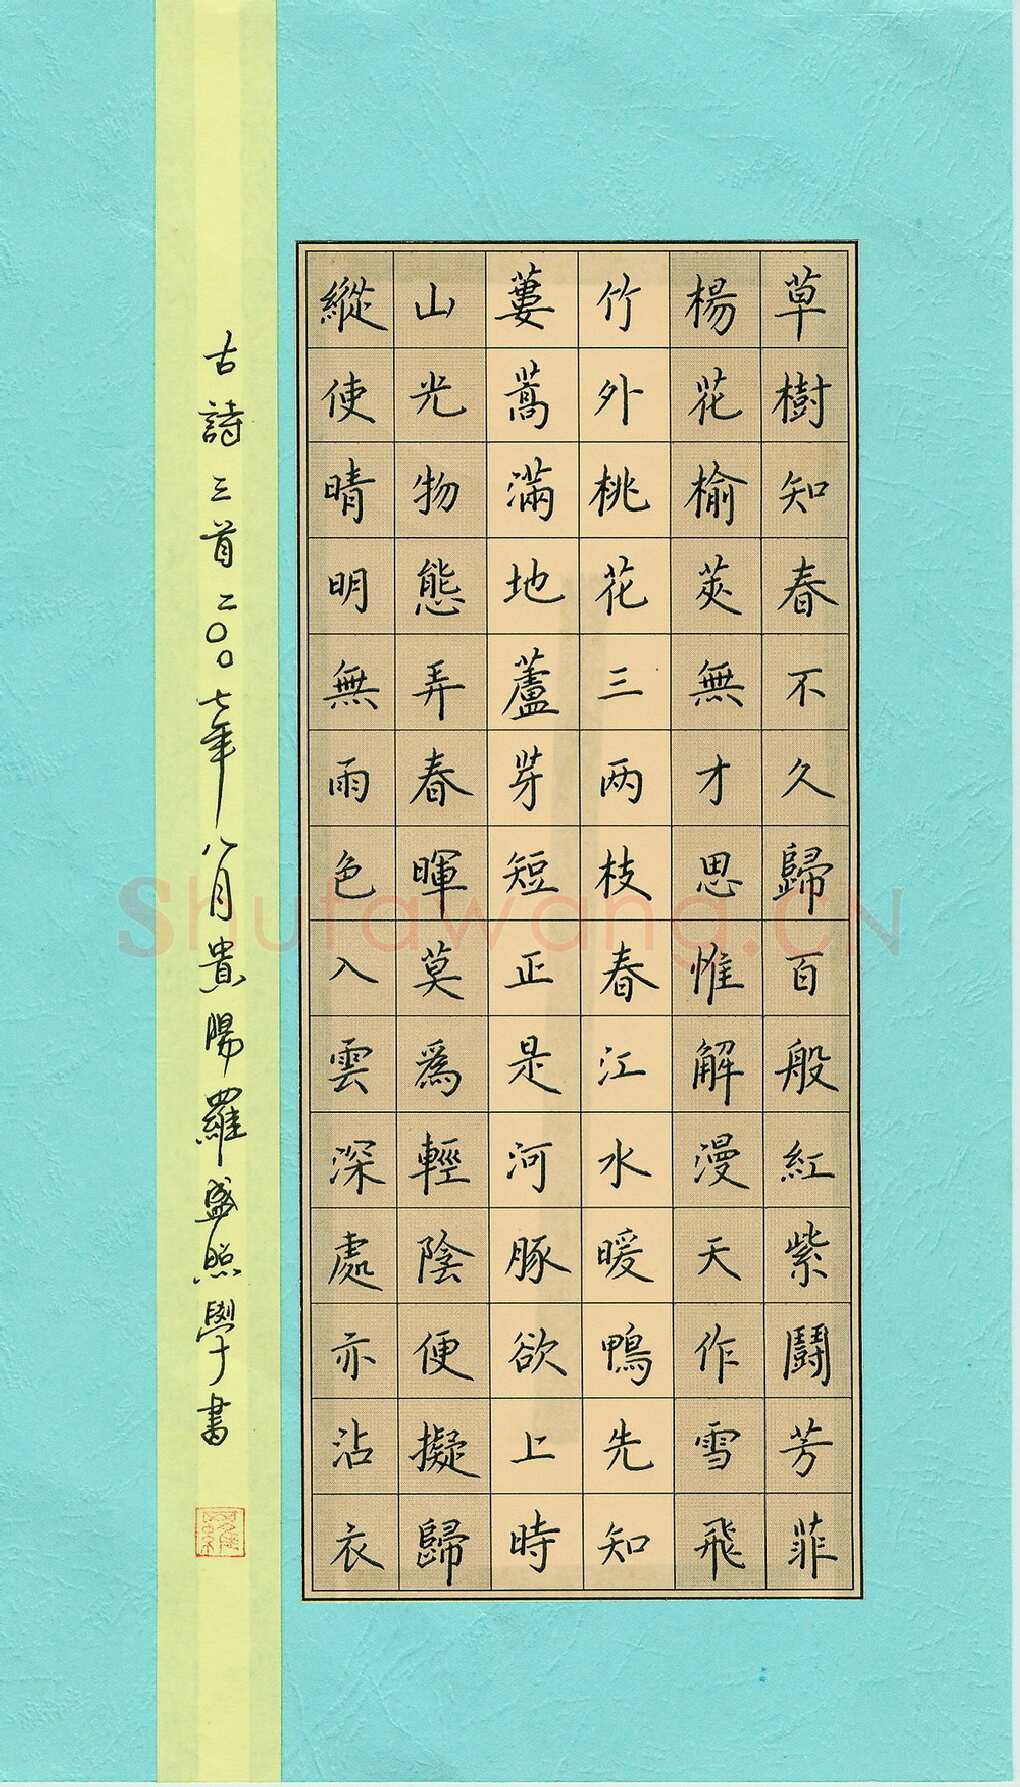 草樹知春不久歸百般紅紫鬪芳菲
楊花榆莢無才思惟解漫天作雪飛
竹外桃花三两枝春江水暖鴨先知
蔞蒿滿地蘆芽短正是河豚欲上時
山光物態弄春暉莫爲輕陰便擬歸
縱使晴明無雨色入雲深處亦沾衣
古詩三首二〇〇七年八月貴陽羅盛照學書
Shufawang.CN